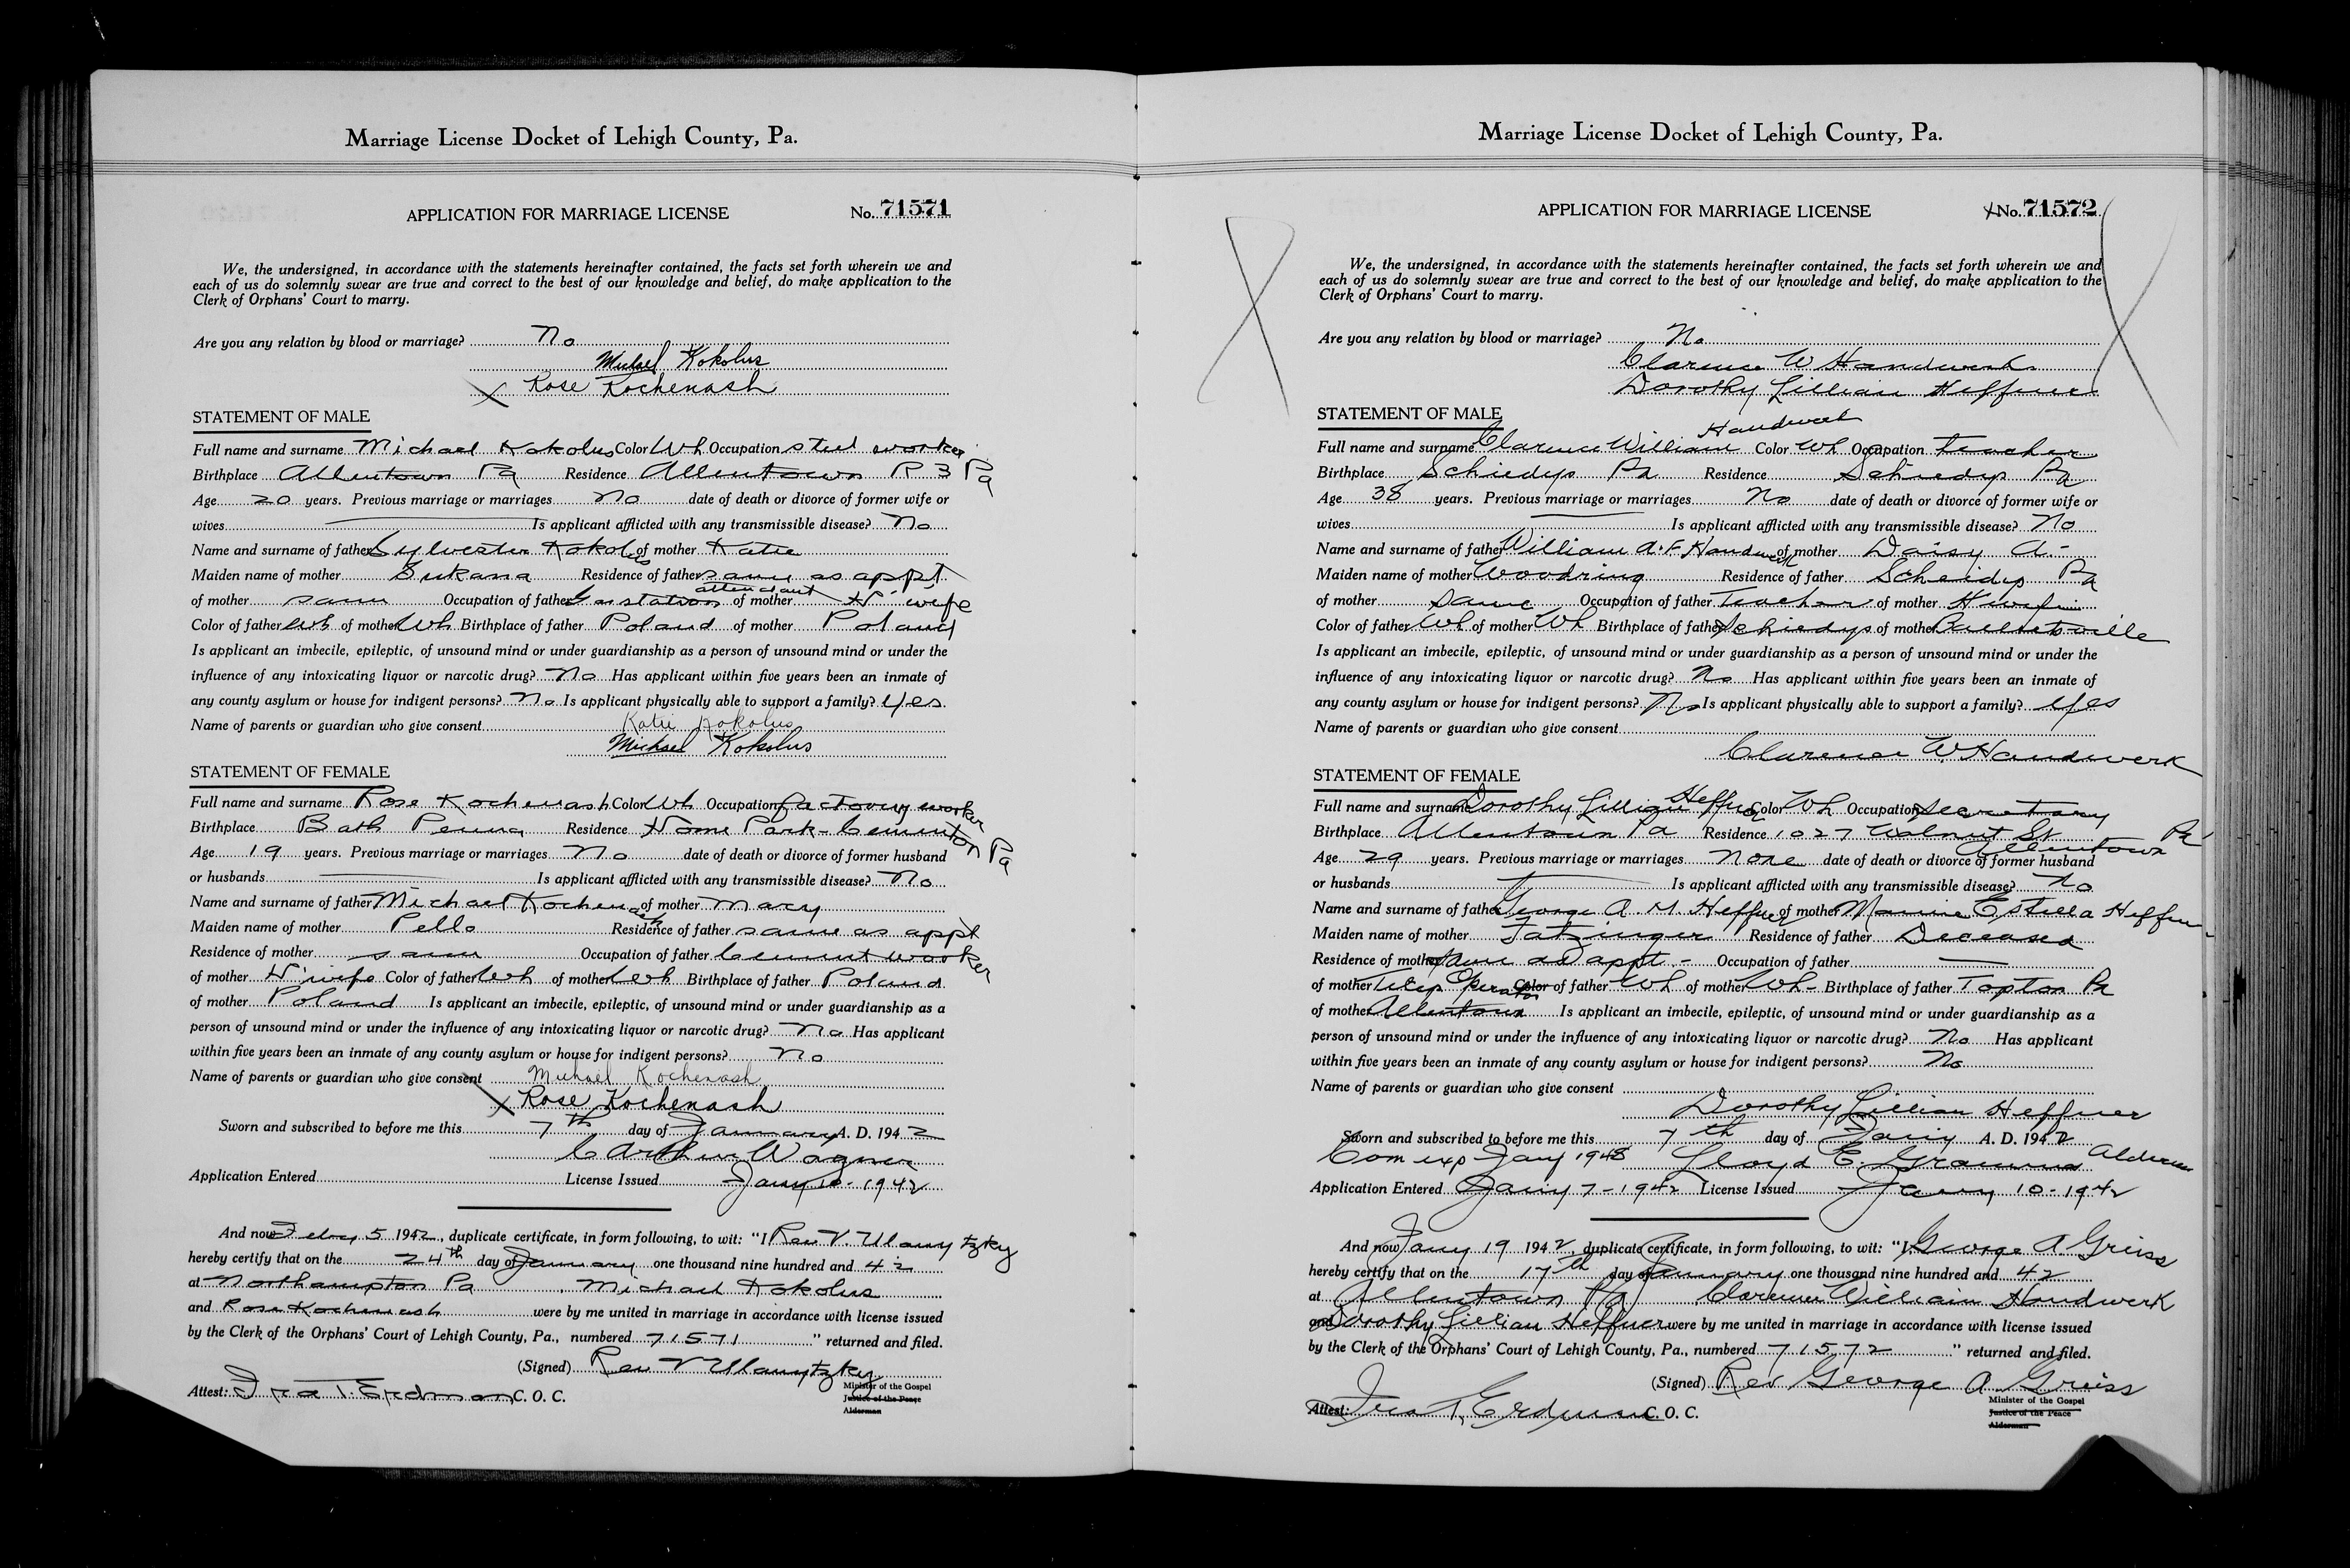 Marriage License Docket of Lehigh County, Pa.
APPLICATION FOR MARRIAGE LICENSE No. 71571
We, the undersigned, in accordance with the statements hereinafter contained, the facts set forth wherein we and
each of us do solemnly swear are true and correct to the best of our knowledge and belief, do make application to the
Clerk of Orphans' Court to marry.
Are you any relation by blood or marriage? No
Michael Kokolus
X Rose Kochenash
STATEMENT OF MALE
Full name and surname Michael Kokolus Color Wh Occupation steel worker
Birthplace Allentown Pa Residence Allentown R 3 Pa
Age 20 years. Previous marriage or marriages No date of death or divorce of former wife or
wives Is applicant afflicted with any transmissible disease? No
Name and surname of father Sylvester Kokolus of mother Katie
Maiden name of mother Sukana Residence of father same as appt
of mother same Occupation of father Gas station attendant of mother H'wife
Color of father Wh of mother Wh Birthplace of father Poland of mother Poland
Is applicant an imbecile, epileptic, of unsound mind or under guardianship as a person of unsound mind or under the
influence of any intoxicating liquor or narcotic drug? No Has applicant within five years been an inmate of
any county asylum or house for indigent persons? No Is applicant physically able to support a family? Yes
Name of parents or guardian who give consent Katie Kokolus
Michael Kokolus
STATEMENT OF FEMALE
Full name and surname Rose Kochenash Color Wh Occupation factory worker
Birthplace Bath Penna Residence Home Park - Cementon Pa
Age 19 years. Previous marriage or marriages No date of death or divorce of former husband
or husbands Is applicant afflicted with any transmissible disease? No
Name and surname of father Michael Kochenash of mother Mary
Maiden name of mother Pello Residence of father same as appt
Residence of mother same Occupation of father Cement worker
of mother H'wife Color of father Wh of mother Wh Birthplace of father Poland
of mother Poland Is applicant an imbecile, epileptic, of unsound mind or under guardianship as a
person of unsound mind or under the influence of any intoxicating liquor or narcotic drug? No Has applicant
within five years been an inmate of any county asylum or house for indigent persons? No
Name of parents or guardian who give consent Michael Kochenash
X Rose Kochenash
Sworn and subscribed to before me this 7th day of January A. D. 1942
C Arthur Wagner
Application Entered License Issued Jany 10 - 1942
And now Feby 5 1942, duplicate certificate, in form following, to wit: "I Rev V. Ulanytzky
hereby certify that on the 24th day of January one thousand nine hundred and 42
at Northampton Pa, Michael Kokolus
and Rose Kochenash were by me united in marriage in accordance with license issued
by the Clerk of the Orphans' Court of Lehigh County, Pa., numbered 71571 " returned and filed.
(Signed) Rev V Ulanytzky
Minister of the Gospel
Justice of the Peace
Alderman
Attest: Ira T. Erdman C. O. C.
Marriage License Docket of Lehigh County, Pa.
APPLICATION FOR MARRIAGE LICENSE X No. 71572
We, the undersigned, in accordance with the statements hereinafter contained, the facts set forth wherein we and
each of us do solemnly swear are true and correct to the best of our knowledge and belief, do make application to the
Clerk of Orphans' Court to marry.
Are you any relation by blood or marriage? No
Clarence W Handwerk
Dorothy Lillian Heffner
STATEMENT OF MALE
Full name and surname Clarence William Handwerk Color Wh Occupation Teacher
Birthplace Schiedys Pa Residence Schiedys Pa
Age 38 years. Previous marriage or marriages No date of death or divorce of former wife or
wives Is applicant afflicted with any transmissible disease? No
Name and surname of father William A. F. Handwerk of mother Daisy A. -
Maiden name of mother Woodring Residence of father Scheidys Pa
of mother Same Occupation of father Teacher of mother H wife
Color of father Wh of mother Wh Birthplace of father Schiedys of mother Balliettsville
Is applicant an imbecile, epileptic, of unsound mind or under guardianship as a person of unsound mind or under the
influence of any intoxicating liquor or narcotic drug? No Has applicant within five years been an inmate of
any county asylum or house for indigent persons? No Is applicant physically able to support a family? Yes
Name of parents or guardian who give consent
Clarence W. Handwerk
STATEMENT OF FEMALE
Full name and surname Dorothy Lillian Heffner Color Wh Occupation Secretary
Birthplace Allentown Pa Residence 1027 Walnut St Allentown Pa
Age 29 years. Previous marriage or marriages None date of death or divorce of former husband
or husbands Is applicant afflicted with any transmissible disease? No
Name and surname of father George A. M. Heffner of mother Mamie Estella Heffner
Maiden name of mother Tatzinger Residence of father Deceased
Residence of mother Same as appt. - Occupation of father
of mother Telep Operator Color of father Wh of mother Wh - Birthplace of father Topton Pa
of mother Allentown Is applicant an imbecile, epileptic, of unsound mind or under guardianship as a
person of unsound mind or under the influence of any intoxicating liquor or narcotic drug? No Has applicant
within five years been an inmate of any county asylum or house for indigent persons? No
Name of parents or guardian who give consent
Dorothy Lillian Heffner
Sworn and subscribed to before me this 7th day of Jany A. D. 1942
Com exp Jany 1948 Lloyd E. Grammes Alderman
Application Entered Jany 7 - 1942 License Issued Jany 10 - 1942
And now Jany 19 1942, duplicate certificate, in form following, to wit: "I George A Greiss
hereby certify that on the 17th day of January one thousand nine hundred and 42
at Allentown Pa, Clarence William Handwerk
and Dorothy Lillian Heffner were by me united in marriage in accordance with license issued
by the Clerk of the Orphans' Court of Lehigh County, Pa., numbered 71572 " returned and filed.
(Signed) Rev George A Greiss
Minister of the Gospel
Justice of the Peace
Alderman
Attest: Ira T. Erdman C. O. C.